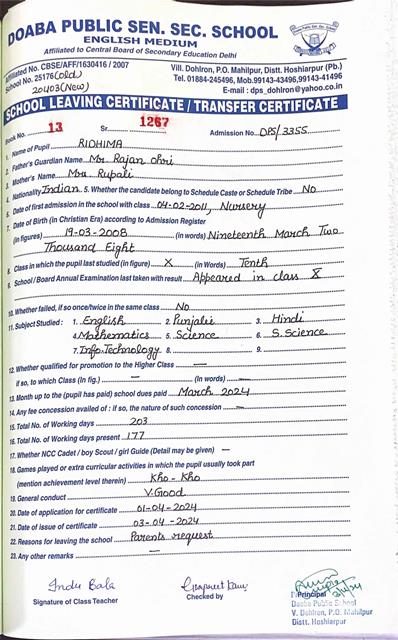 DOABA PUBLIC SEN. SEC. SCHOOL
ENGLISH MEDIUM
Affiliated to Central Board of Secondary Education Delhi
Affiliated No. CBSE/AFF/1630416 / 2007
Vill. Dohlron, P.O. Mahilpur, Distt. Hoshiarpur (Pb.)
School No. 25176 (old)
Tel. 01884-245496, Mob.99143-43496,99143-41496
20403 (New)
E-mail : dps_dohlron@yahoo.co.in
SCHOOL LEAVING CERTIFICATE / TRANSFER CERTIFICATE
Book No. 13 Sr. 1267 Admission No. DPS/3355
1. Name of Pupil RIDHIMA
2. Father's Guardian Name Mr. Rajan Ohri
3. Mother's Name Mrs. Rupali
4. Nationality Indian 5. Whether the candidate belong to Schedule Caste or Schedule Tribe No
6. Date of first admission in the school with class 04-02-2011, Nursery
7. Date of Birth (in Christian Era) according to Admission Register
(in figures) 19-03-2008 (in words) Nineteenth March Two
Thousand Eight
8. Class in which the pupil last studied (in figure) X (in Words) Tenth
9. School / Board Annual Examination last taken with result Appeared in class X
10. Whether failed, if so once/twice in the same class No
11. Subject Studied : 1. English 2. Punjabi 3. Hindi
4. Mathematics 5. Science 6. S.Science
7. Info. Technology 8. 9.
12. Whether qualified for promotion to the Higher Class —
if so, to which Class (In fig.) — (In words) —
13. Month up to the (pupil has paid) school dues paid March 2024
14. Any fee concession availed of : if so, the nature of such concession —
15. Total No. of Working days 203
16. Total No. of Working days present 177
17. Whether NCC Cadet / boy Scout / girl Guide (Detail may be given) —
18. Games played or extra curricular activities in which the pupil usually took part
(mention achievement level therein) Kho - Kho
19. General conduct V.Good
20. Date of application for certificate 01-04-2024
21. Date of issue of certificate 03-04-2024
22. Reasons for leaving the school Parents request
23. Any other remarks —
Indu Bala
Signature of Class Teacher
Checked by
Principal
Doaba Public School
V. Dohlron, P.O. Mahilpur
Distt. Hoshiarpur